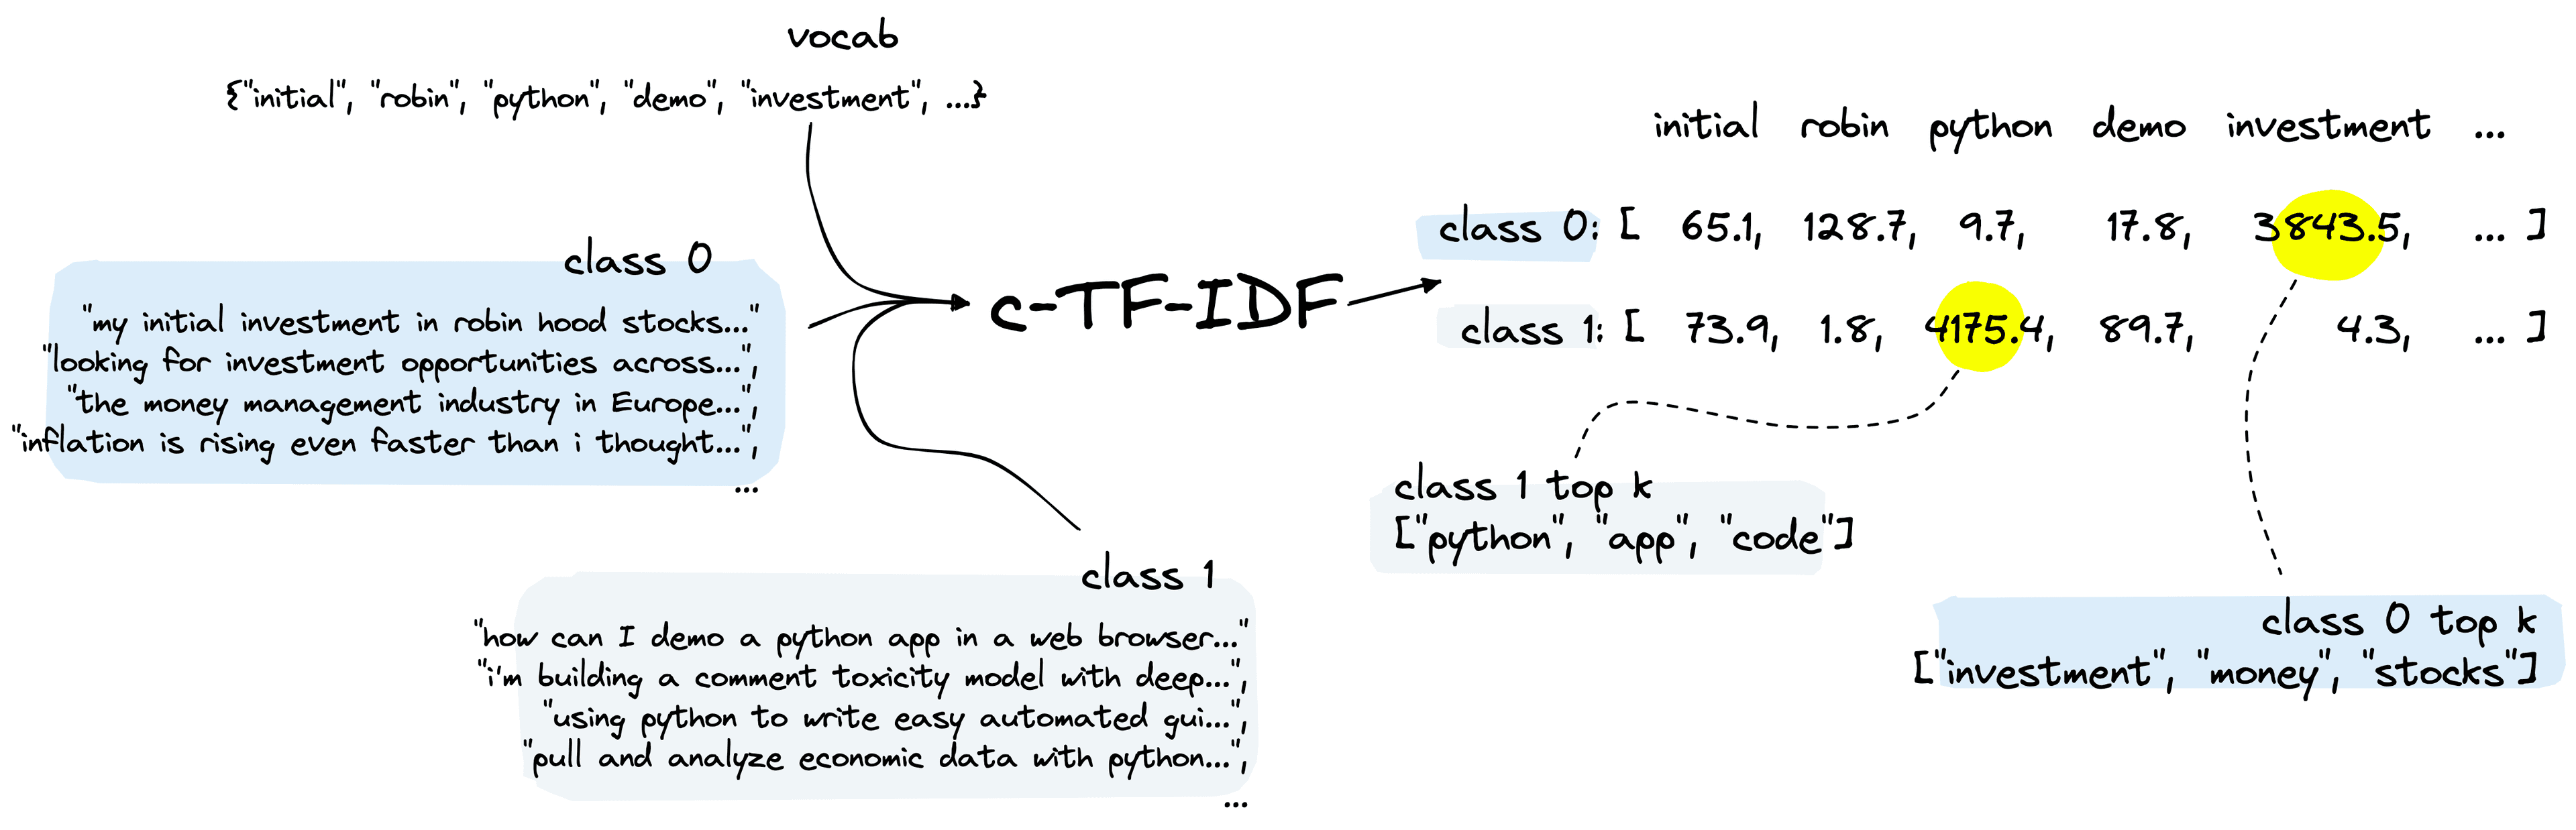 vocab
{"initial", "robin", "python", "demo", "investment", ...}
class 0
"my initial investment in robin hood stocks..."
"looking for investment opportunities across...",
"the money management industry in Europe...",
"inflation is rising even faster than i thought...",
...
class 1
"how can I demo a python app in a web browser..."
"i'm building a comment toxicity model with deep...",
"using python to write easy automated gui...",
"pull and analyze economic data with python...",
...
c-TF-IDF
initial robin python demo investment ...
class 0: [ 65.1, 128.7, 9.7, 17.8, 3843.5, ... ]
class 1: [ 73.9, 1.8, 4175.4, 89.7, 4.3, ... ]
class 1 top k
["python", "app", "code"]
class 0 top k
["investment", "money", "stocks"]